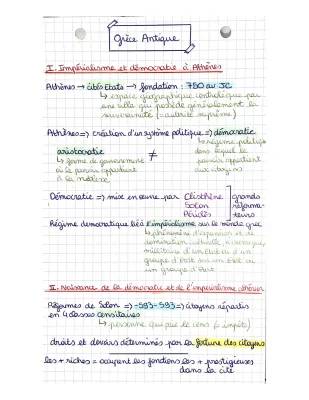 Grèce Antique
I. Impérialisme et démocratie à Athènes
Athènes → cités Etats → fondation : 750 av JC
↳ espace géographique contrôlé par
une ville qui possède généralement la
souveraineté (= autorité suprême)
Athènes => création d'un système politique => démocratie
↳ régime politique
dans lequel le
pouvoir appartient
aux citoyens
≠
aristocratie
↳ forme de gouvernement
où le pouvoir appartient
à la noblesse
Démocratie => mise en œuvre par Clisthène
Solon
Périclès
grands
réforma-
teurs
Régime démocratique lié à l'impérialisme sur le monde grec
↳ phénomène d'expansion et de
domination culturelle, économique,
militaire d'un Etat ou d'un
groupe d'Etat sur un Etat ou
un groupe d'Etat
II. Naissance de la démocratie et de l'impérialisme athénien
Réformes de Solon => -593 => citoyens répartis
en 4 classes censitaires
↳ personne qui paie le cens (= impôts)
droits et devoirs déterminés par la fortune des citoyens
les + riches = occupent les fonctions les + prestigieuses
dans la cité